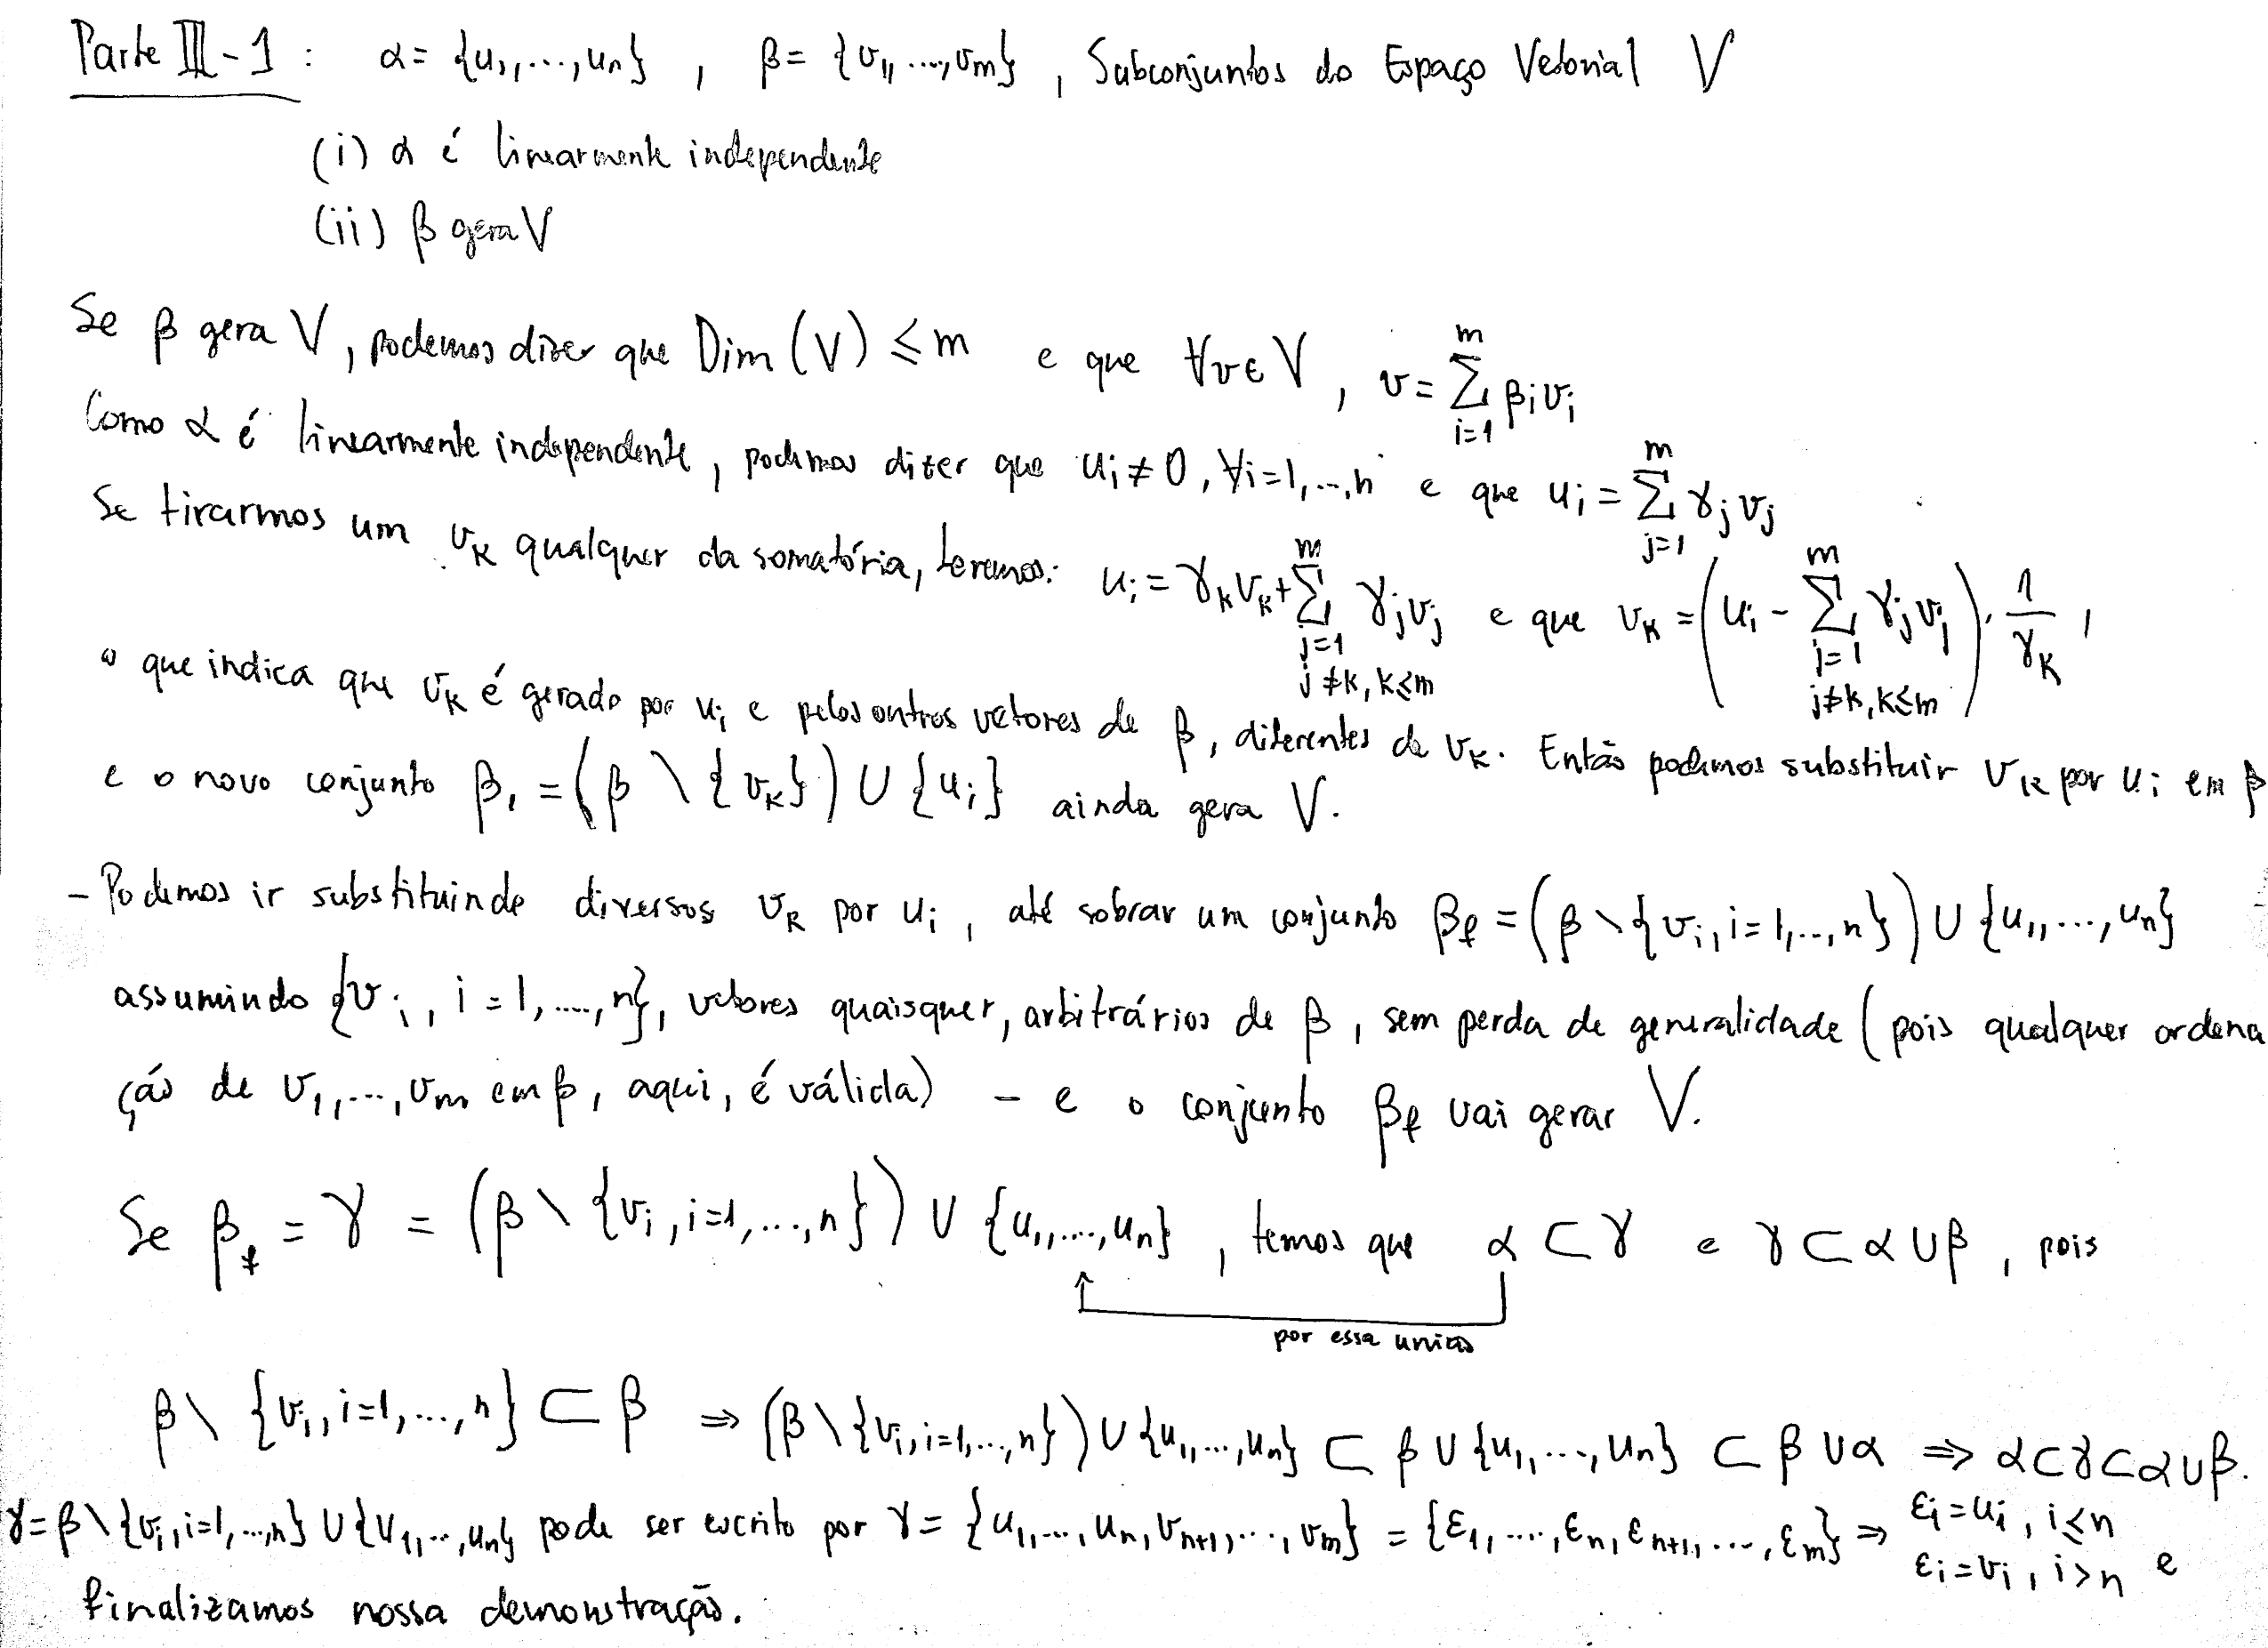 Parte III-1 : α = {u₁,...,uₙ} , β = {v₁,...,vₘ} , Subconjuntos do Espaço Vetorial V
(i) α é linearmente independente
(ii) β gera V
Se β gera V, podemos dizer que Dim(V) ≤ m e que ∀v∈V, v = ∑_{i=1}^{m} βᵢvᵢ
Como α é linearmente independente, podemos dizer que uᵢ ≠ 0, ∀i=1,...,n e que uᵢ = ∑_{j=1}^{m} γⱼvⱼ
Se tirarmos um v_k qualquer da somatória, teremos: uᵢ = γ_k v_k + ∑_{j=1, j≠k, k≤m}^{m} γⱼvⱼ e que v_k = (uᵢ - ∑_{j=1, j≠k, k≤m}^{m} γⱼvⱼ) · 1/γ_k ,
o que indica que v_k é gerado por uᵢ e pelos outros vetores de β, diferentes de v_k. Então podemos substituir v_k por uᵢ em β
e o novo conjunto β₁ = (β \ {v_k}) ∪ {uᵢ} ainda gera V.
- Podemos ir substituindo diversos v_k por uᵢ, até sobrar um conjunto β_f = (β \ {vᵢ, i=1,...,n}) ∪ {u₁,...,uₙ}
assumindo {vᵢ, i=1,...,n}, vetores quaisquer, arbitrários de β, sem perda de generalidade (pois qualquer ordena
ção de v₁,...,vₘ em β, aqui, é válida) - e o conjunto β_f vai gerar V.
Se β_f = γ = (β \ {vᵢ, i=1,...,n}) ∪ {u₁,...,uₙ}, temos que α ⊂ γ e γ ⊂ α∪β, pois
por essa união
β \ {vᵢ, i=1,...,n} ⊂ β ⇒ (β \ {vᵢ, i=1,...,n}) ∪ {u₁,...,uₙ} ⊂ β ∪ {u₁,...,uₙ} ⊂ β ∪ α ⇒ α⊂γ⊂α∪β.
γ = β \ {vᵢ, i=1,...,n} ∪ {u₁,...,uₙ} pode ser escrito por γ = {u₁,...,uₙ, vₙ₊₁,...,vₘ} = {ε₁,...,εₙ, εₙ₊₁,...,εₘ} ⇒ εᵢ=uᵢ, i≤n
εᵢ=vᵢ, i>n e
finalizamos nossa demonstração.